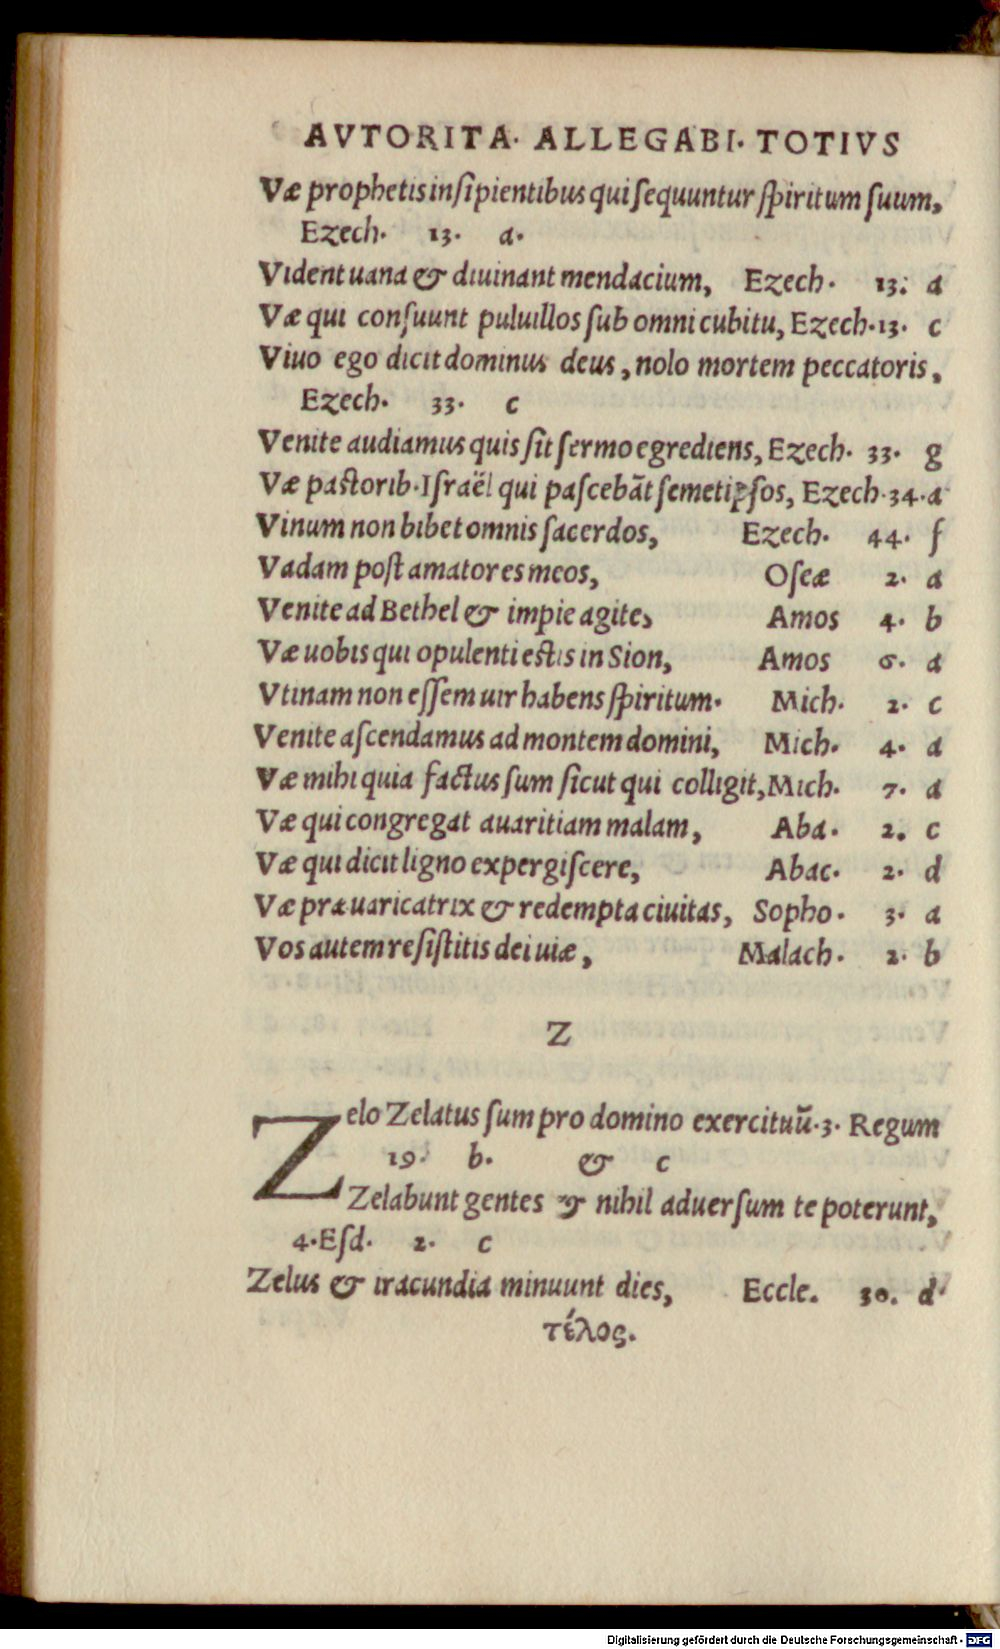 AVTORITA· ALLEGABI· TOTIVS
Væ prophetis insipientibus qui sequuntur spiritum suum,
Ezech· 13· a·
Vident uana & diuinant mendacium, Ezech· 13: a
Væ qui consuunt puluillos sub omni cubitu, Ezech·13· c
Viuo ego dicit dominus deus, nolo mortem peccatoris,
Ezech· 33· c
Venite audiamus quis sit sermo egrediens, Ezech· 33· g
Væ pastorib·Israël qui pascebāt semetipsos, Ezech·34·a
Vinum non bibet omnis sacerdos, Ezech· 44· f
Vadam post amatores meos, Oseæ 2· a
Venite ad Bethel & impie agite, Amos 4· b
Væ uobis qui opulenti estis in Sion, Amos 6· a
Vtinam non essem uir habens spiritum· Mich· 2· c
Venite ascendamus ad montem domini, Mich· 4· a
Væ mihi quia factus sum sicut qui colligit, Mich· 7· a
Væ qui congregat auaritiam malam, Aba· 2. c
Væ qui dicit ligno expergiscere, Abac· 2· d
Væ præuaricatrix & redempta ciuitas, Sopho· 3· a
Vos autem resistitis dei uiæ, Malach· 2· b
Z
Zelo Zelatus sum pro domino exercituū·3· Regum
19· b· & c
Zelabunt gentes & nihil aduersum te poterunt,
4·Esd· 2· c
Zelus & iracundia minuunt dies, Eccle. 30. d
τέλος.
Digitalisierung gefördert durch die Deutsche Forschungsgemeinschaft - DFG